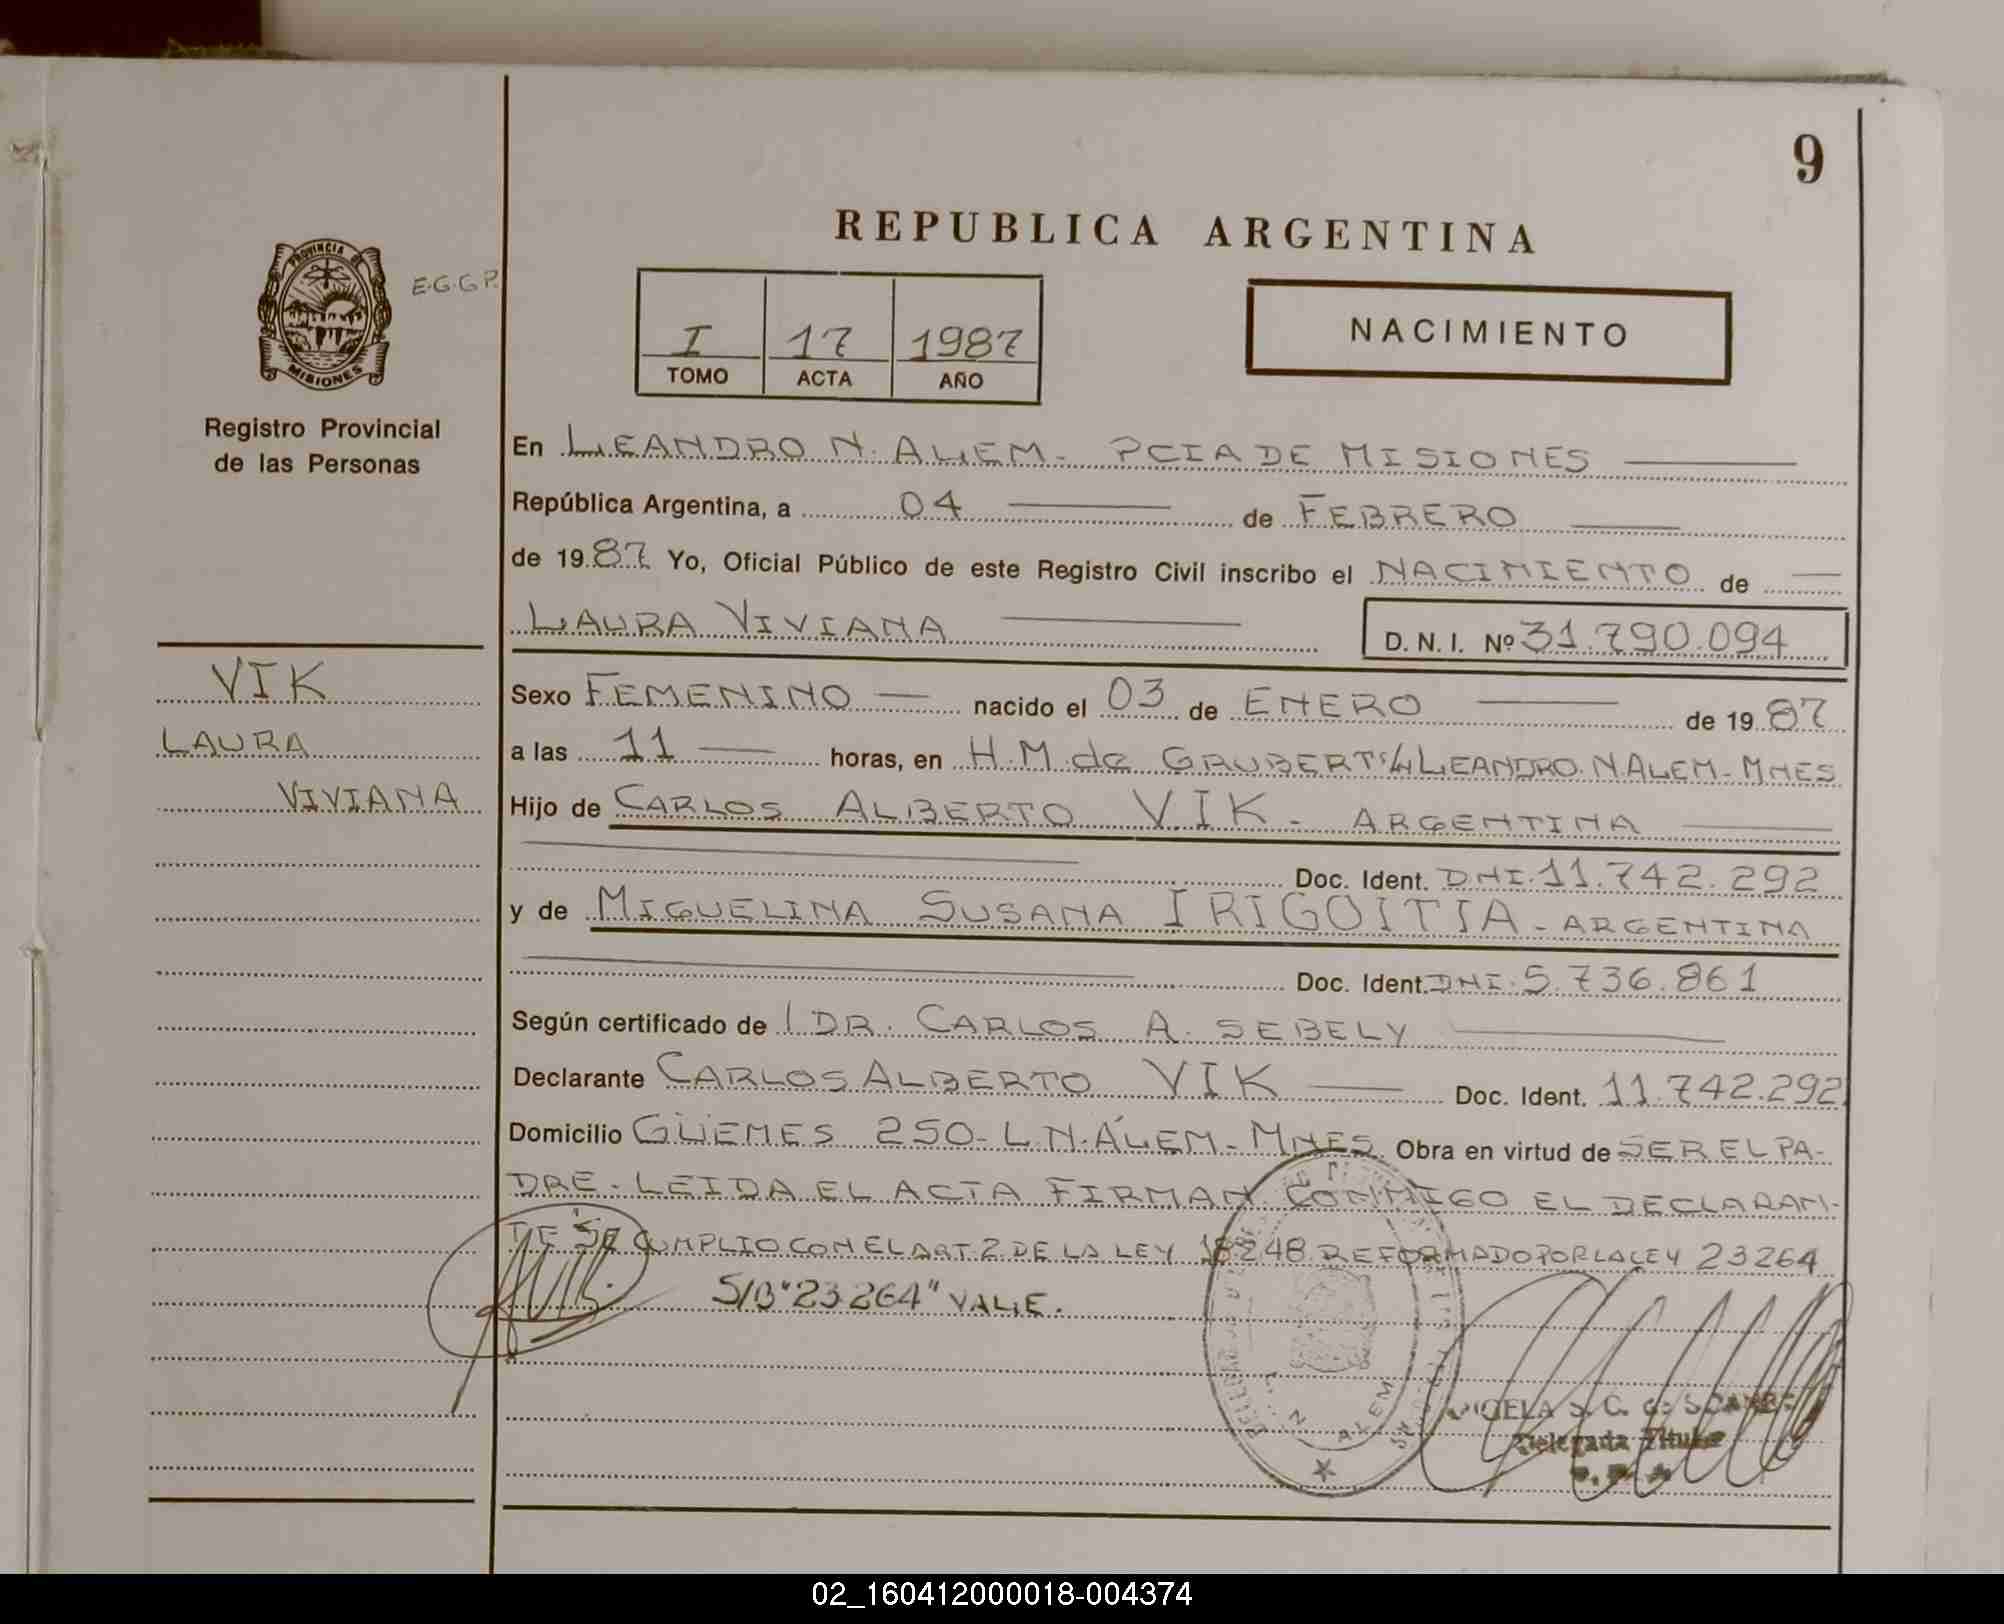 9
REPUBLICA ARGENTINA
PROVINCIA DE
MISIONES
E.G.G.P.
Registro Provincial
de las Personas
I 17 1987
TOMO ACTA AÑO
NACIMIENTO
En LEANDRO N. ALEM - PCIA DE MISIONES
República Argentina, a 04 de FEBRERO
de 1987 Yo, Oficial Público de este Registro Civil inscribo el NACIMIENTO de
LAURA VIVIANA D. N. I. Nº 31.790.094
VIK
LAURA
VIVIANA
Sexo FEMENINO nacido el 03 de ENERO de 1987
a las 11 horas, en H.M. de GRUBERT LEANDRO N ALEM - MNES
Hijo de CARLOS ALBERTO VIK - ARGENTINA
Doc. Ident. DNI. 11.742.292
y de MIGUELINA SUSANA IRIGOITIA - ARGENTINA
Doc. Ident. DNI. 5.736.861
Según certificado de DR. CARLOS A. SEBELY
Declarante CARLOS ALBERTO VIK Doc. Ident. 11.742.292
Domicilio GÜEMES 250 - L. N. ALEM - MNES Obra en virtud de SER EL PA-
DRE - LEIDA EL ACTA FIRMAN CONMIGO EL DECLARAN-
TE Se CUMPLIO CON EL ART. 2 DE LA LEY 18248 REFORMADO POR LA LEY 23264
S/B "23264" VALE.
N ALEM
S. C. de
Delegada Titular
02_160412000018-004374